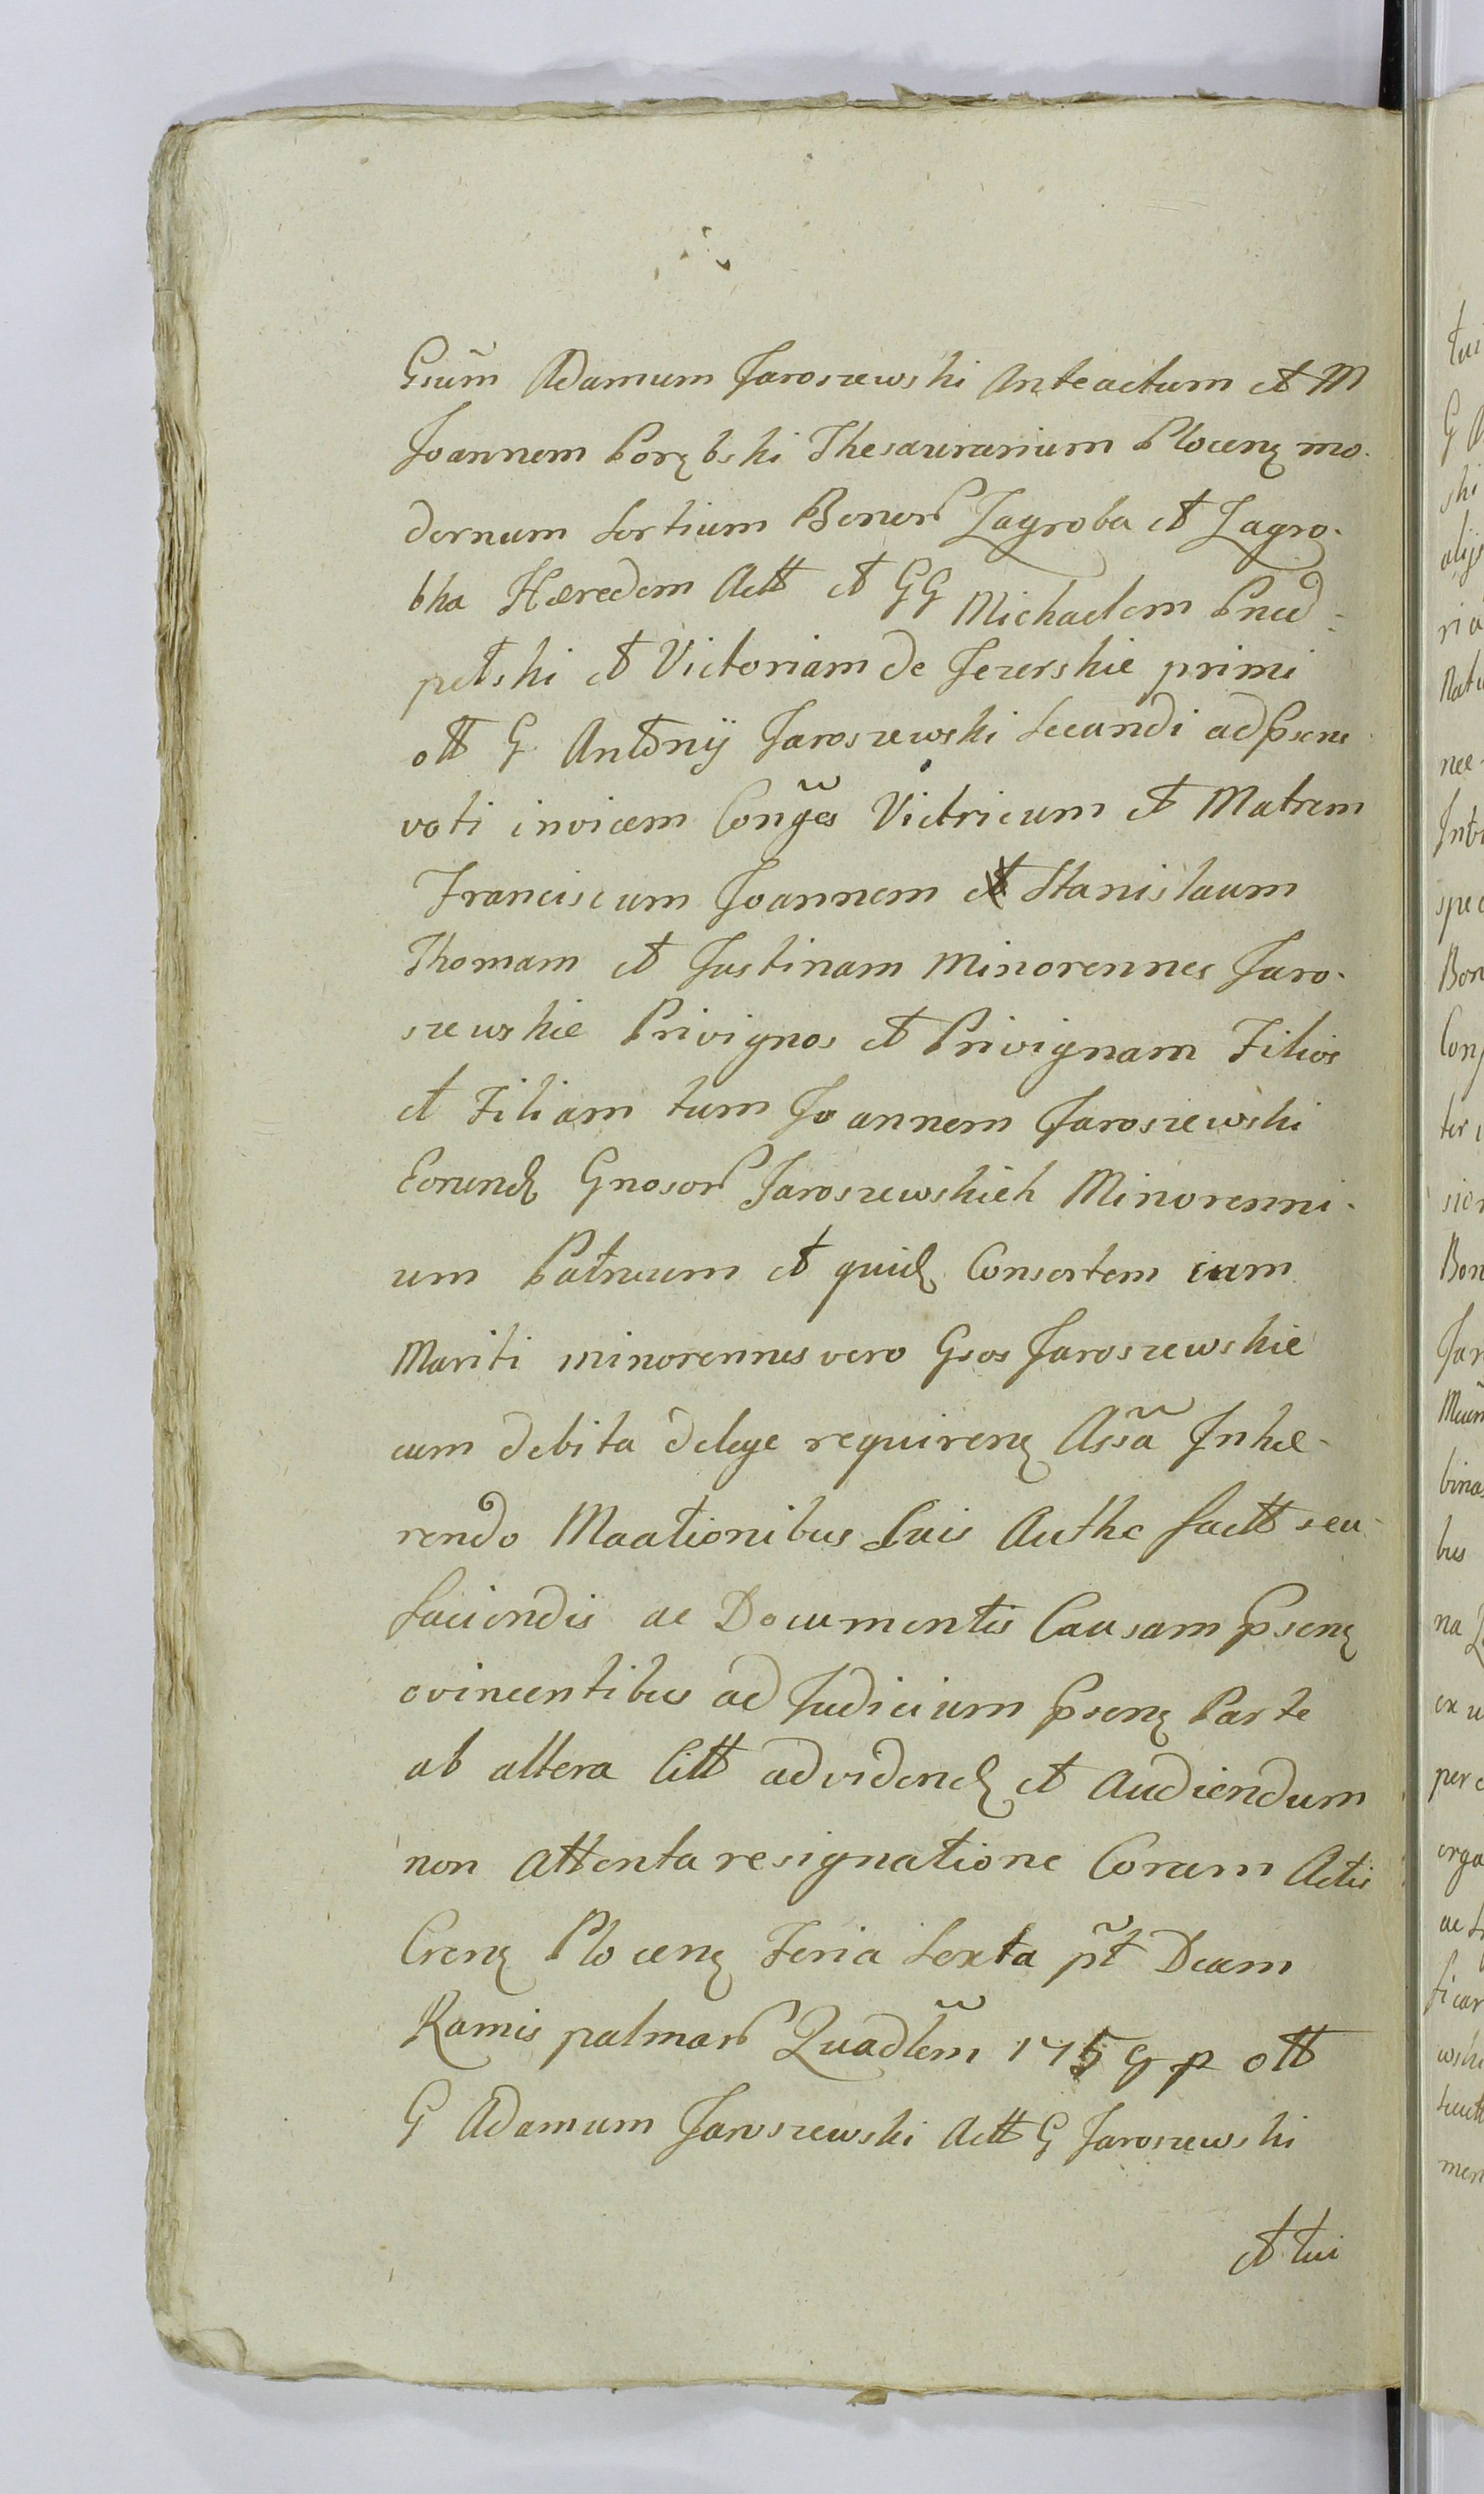 Gsum̃ Adamum Jaroszewski Anteactum et M
Joannem Porębski Thesaurarium Plocen mo-
dernum Sortium Bonor Zagroba et Zagro-
bka Hæredem Actt et GG Michaelem
petski et Victoriam de Jezerskie primi
ott G Antonij Jaroszewski Secundi ad psens
voti invicem Conỹes Victricum et Matrem
Franciscum Joannem Stanislaum
Thomam et Justinam Minorennes Jaro-
szewskie Privignos et Privignam Filios
et Filiam tum Joannem Jaroszewski
Eorund Gnosor Jaroszewskich Minorenni-
um Patruum et quid Consortem cum
Mariti minorennes vero Gsos Jaroszewskie
cum debita delege requiren Assã Inhæ-
rendo Maationibus Suis Authe factt seu
faciendis ac Documentis Causam psen
evincentibus ad Judicium psen Parte
ab altera Citt ad vidend et Audiendum
non attenta resignatione Coram Actis
Cren Plocen Feria Sexta pt̃ Dcam
Ramis palmar Quadlem̃ 1759 p ott
G Adamum Jaroszewski Actt G Jaroszewski
et tui
tui
G A
ski
alijs
ria
Natu
nec
Int
spec
Bon
Con
ter
sion
Bon
Jar
bina
bus
na
ex u
per
erga
ac
ficar
wski
men